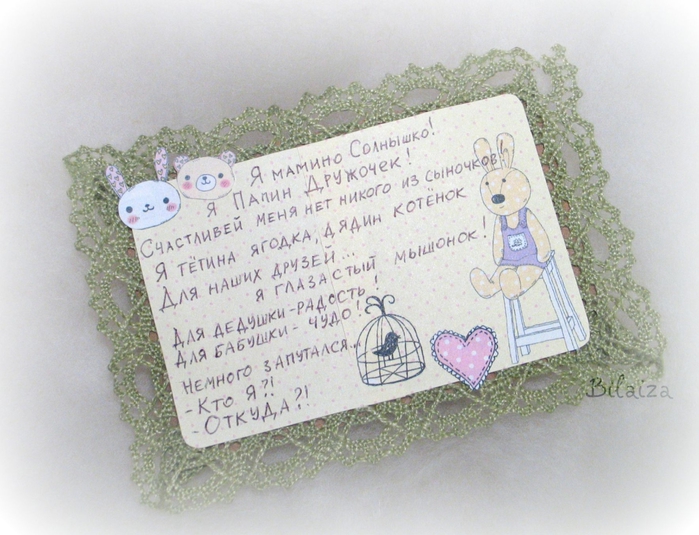 Я мамино Солнышко!
Я Папин Дружочек!
Счастливей меня нет никого из сыночков!
Я тётина ягодка, дядин котёнок
Для наших друзей...
я глазастый мышонок!
Для дедушки-радость!
Для бабушки- чудо!
Немного запутался...
-Кто я?!
-Откуда?!
Bilaiza